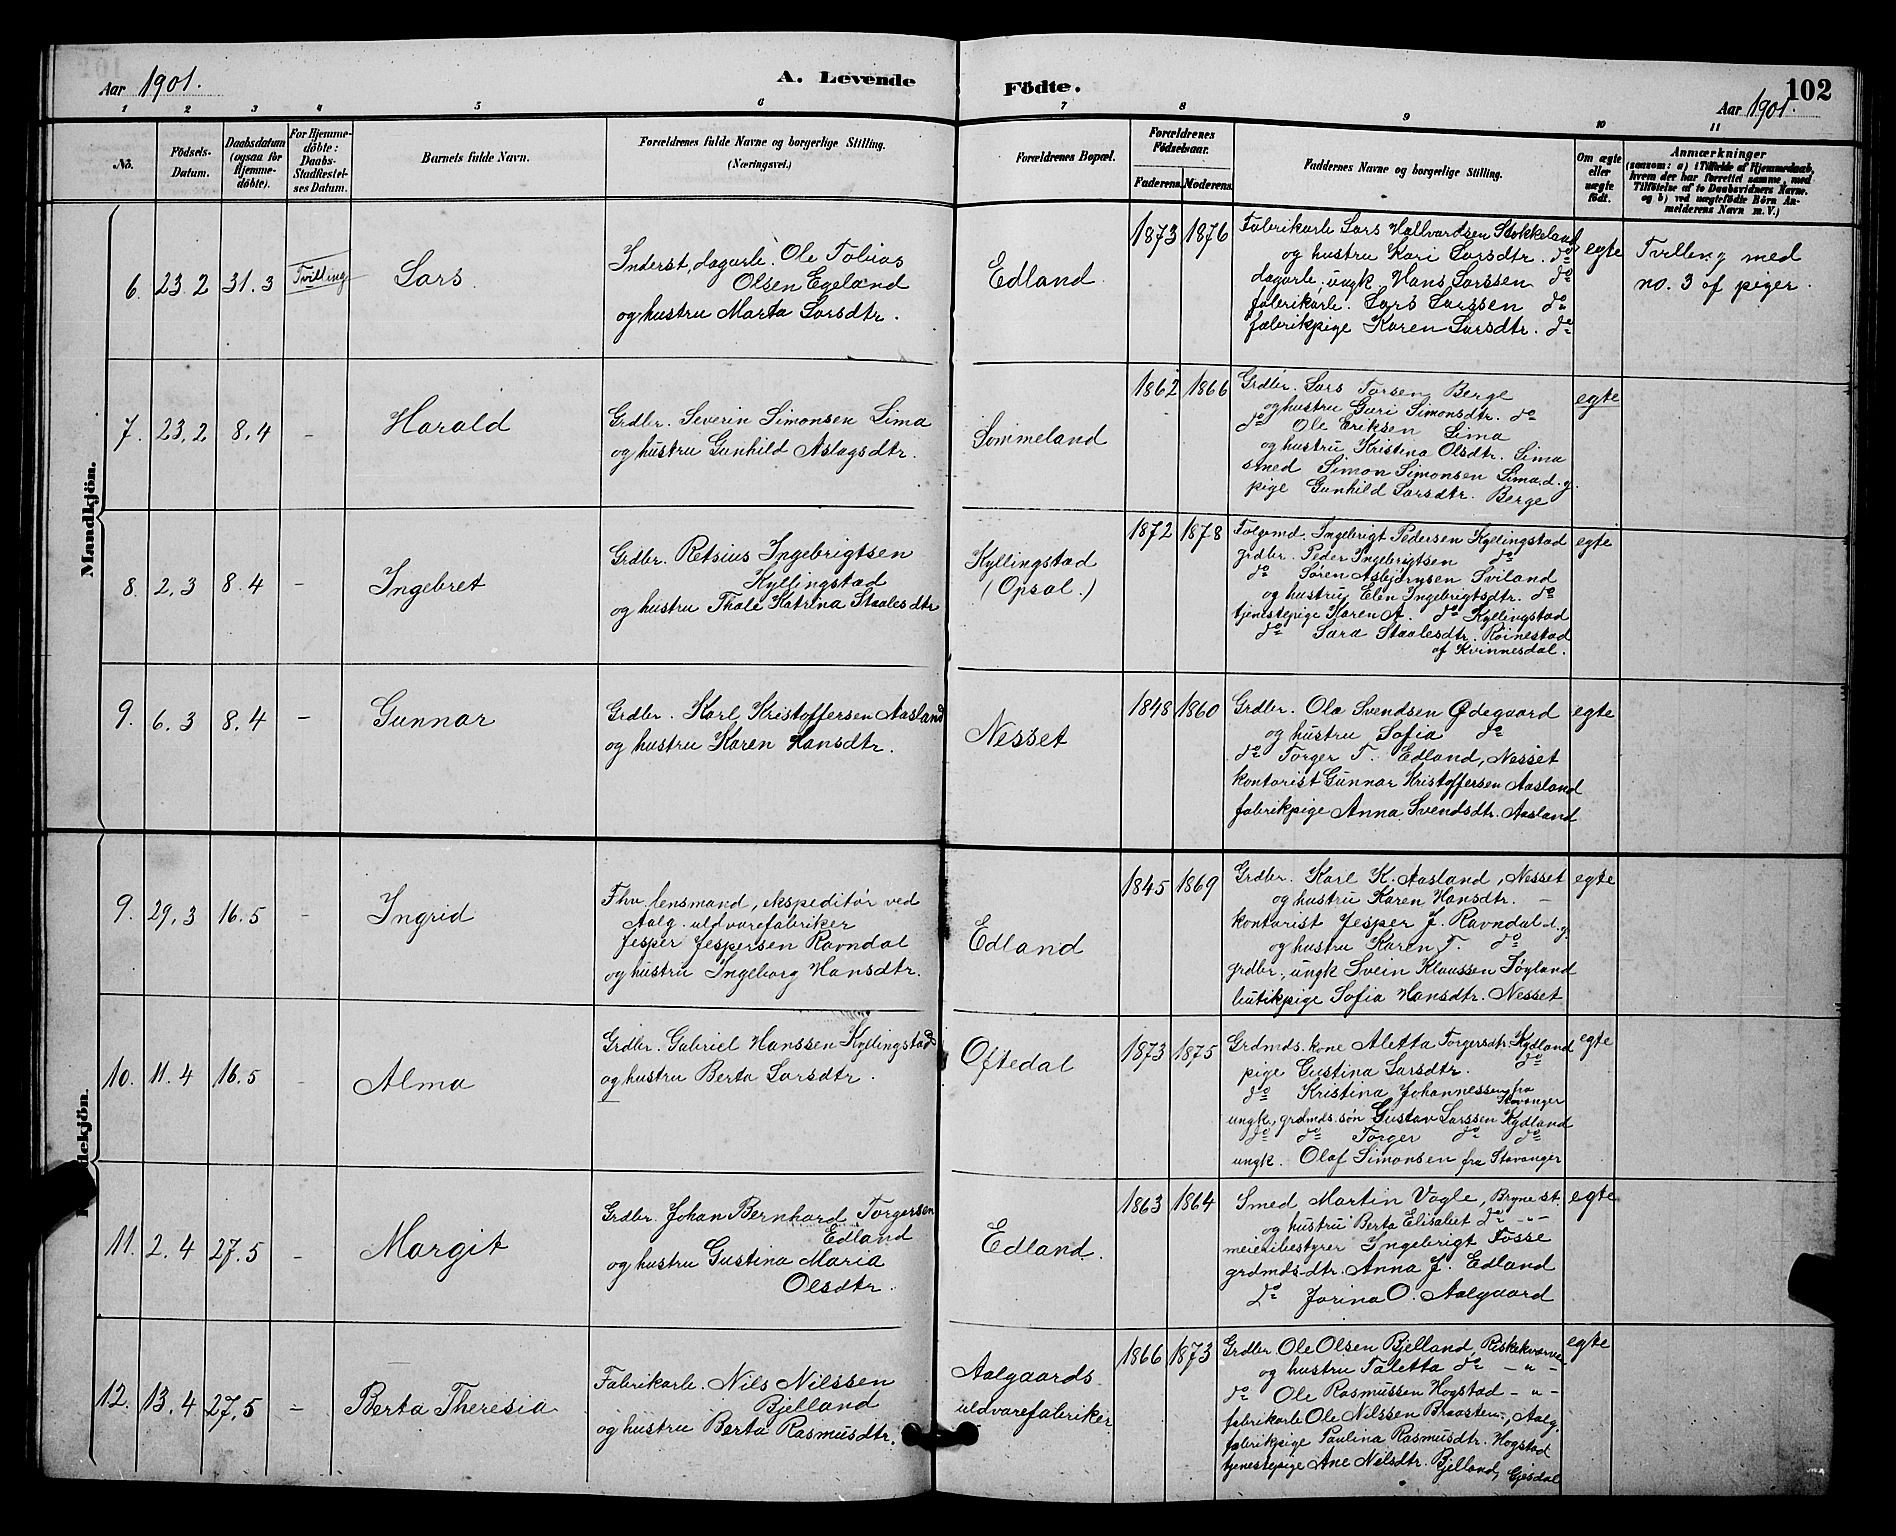 Aar 1901.
A. Levende
Födte.
102
Aar 1901.
1 2 3 4 5 6 7 8 9 10 11
No.
Födsels-
Datum.
Daabsdatum
(ogsaa for
Hjemme-
döbte).
For Hjemme-
döbte:
Daabs-
Stadfæstel-
ses Datum.
Barnets fulde Navn.
Forældrenes fulde Navne og borgerlige Stilling.
(Næringsvei.)
Forældrenes Bopæl.
Forældrenes
Fødselsaar.
Faderens. Moderens.
Faddernes Navne og borgerlige Stilling.
Om ægte
eller
uægte
födt.
Anmærkninger
(saasom: a) i Tilfælde af Hjemmedaab,
hvem der har forrettet samme, med
Tilföielse af to Daabsvidners Navne.
og b) ved uægtefödte Börn An-
melderens Navn m. V.)
Mandkjön.
6. 23.2 31.3 Tvilling Lars
Inderst, dagarb. Ole Tobias
Olsen Egeland
og hustru Marta Larsdtr.
Edland.
1873 1876
Fabrikarb. Lars Hallvardsen Stokkeland
og hustru Kari Larsdtr. do
dagarb., ungk. Hans Larssen do
fabrikarb. Lars Larssen do
fabrikpige Karen Larsdtr. do
egte
Tvilling med
no. 3 af piger.
7. 23.2 8.4 – Harald
Grdbr. Severin Simonsen Lima
og hustru Gunhild Aslagsdtr.
Sommeland
1862 1866
Grdbr. Lars Torsen Berge
og hustru Guri Simonsdtr. do
do Ole Eriksen Lima
og hustru Kristina Olsdtr. Lima
smed Simon Simonsen Lima d.y.
pige Gunhild Larsdtr. Berge
egte
8. 2.3 8.4 – Ingebret
Grdbr. Retsius Ingebrigtsen
Kyllingstad
og hustru Thale Katrina Staalesdtr
Kyllingstad
(Opsal.)
1872 1878
Folgemd. Ingebrigt Pedersen Kyllingstad
grdbr. Peder Ingebrigtsen do
do Søren Asbjörnsen Sviland
og hustru Elen Ingebrigtsdtr. do
tjenestepige Karen A. do Kyllingstad
do Sara Staalesdtr. Röinestad
af Kvinnesdal.
egte
9. 6.3 8.4 – Gunnar
Grdbr. Karl Kristoffersen Aasland
og hustru Karen Hansdtr.
Nesset
1848 1860
Grdbr. Ola Svendsen Ødegaard
og hustru Sofia do
do Torger T. Edland, Nesset
kontorist Gunnar Kristoffersen Aasland
fabrikpige Anna Svendsdtr. Aasland
egte
9. 29.3 16.5 – Ingrid
Fhv. lensmand, ekspeditør ved
Aalg. uldvarefabriker
Jesper Jespersen Ravndal
og hustru Ingeborg Hansdtr.
Edland
1845 1869
Grdbr. Karl K. Aasland, Nesset
og hustru Karen Hansdtr. –
kontorist Jesper J. Ravndal d.y.
og hustru Karen T. do
grdbr., ungk Svein Klaussen Söyland
butikpige Sofia Hansdtr. Nesset
egte
10. 11.4 16.5 – Alma
Grdbr. Gabriel Hanssen Kyllingstad
og hustru Berta Larsdtr.
Oftedal
1873 1875
Grdmds. kone Aletta Torgersdtr. Kydland
pige Gustina Larsdtr. do
do Kristina Johannessen fra
Stavanger
ungk., grdmds. søn Gustav Larssen Kydland
do do Torger do do
ungk. Olaf Simonsen fra Stavanger
egte
11. 2.4 27.5 – Margit
Grdbr. Johan Bernhard Torgersen
Edland
og hustru Gustina Maria
Olsdtr.
Edland.
1863 1864
Smed Martin Vagle, Bryne st.
og hustru Berta Elisabet do –„–
meieribestyrer Ingebrigt Fosse
grdmds-dtr. Anna J. Edland
do Jorina O. Aalgaard
egte
12. 13.4 27.5 – Berta Theresia
Fabrikarb. Nils Nilssen
Bjelland
og hustru Berta Rasmusdtr.
Aalgaards
uldvarefabriker
1866 1873
Grdbr. Ole Olsen Bjelland, Riskekværne
og hustru Taletta do –„–
do Ole Rasmussen Hogstad –„–
fabrikarb Ole Nilssen Braasten, Aalg.
fabrikpige Paulina Rasmusdtr. Hogstad
tjenestepige Ane Nilsdtr. Bjelland, Gjesdal
egte